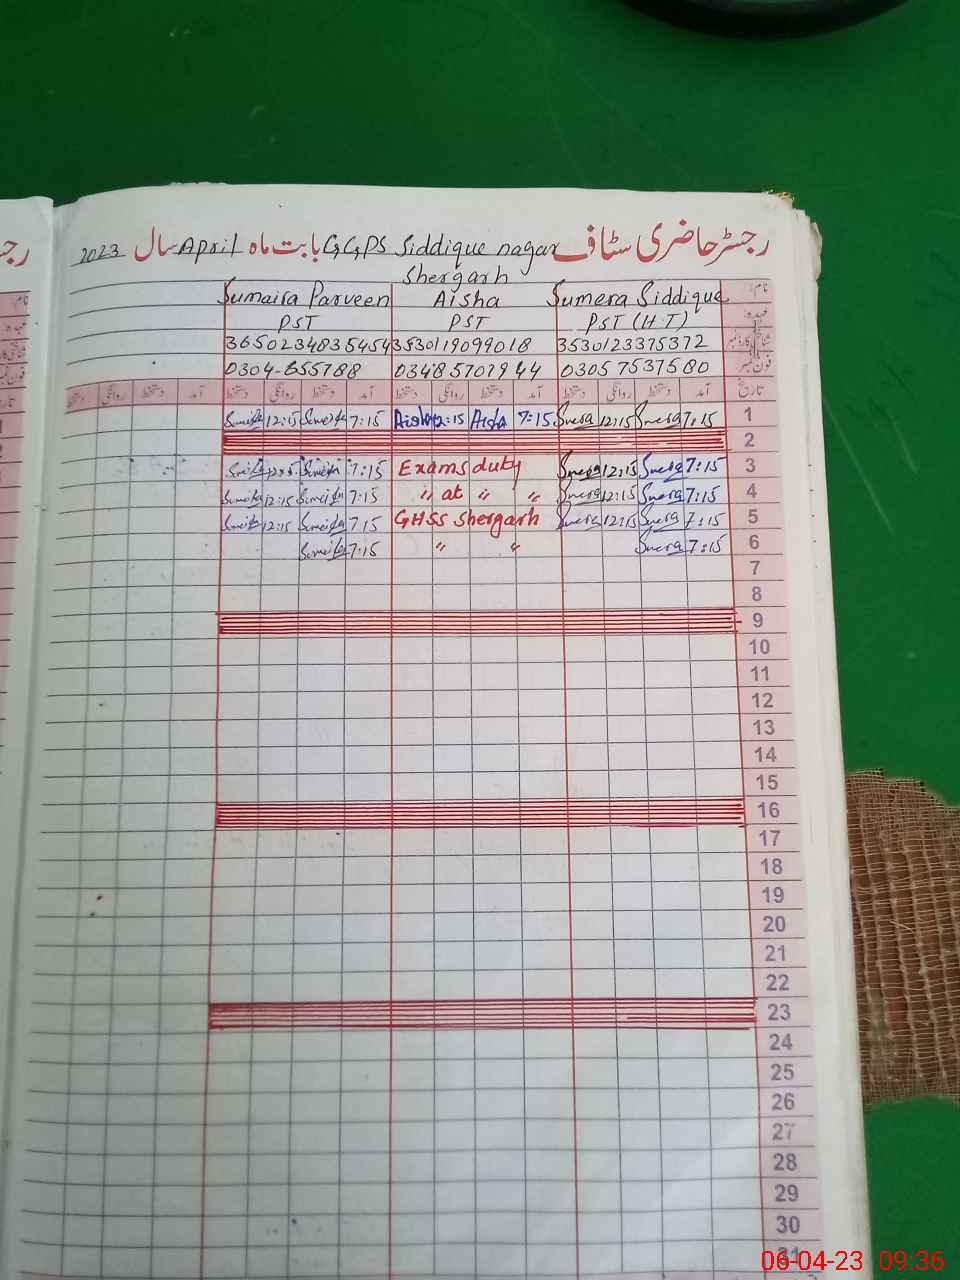 رجسٹر حاضری سٹاف GGPS Siddique nagar Shergarh بابت ماہ April سال 2023
نام: Sumera Siddique Aisha Sumaira Parveen
عہدہ: PST (H.T) PST PST
شناختی کارڈ نمبر 3530123375372 3530119099018 3650234835454
فون نمبر 03057537580 03485701944 0304-655788
تاریخ آمد دستخط روانگی دستخط آمد دستخط روانگی دستخط آمد دستخط روانگی دستخط آمد دستخط روانگی دستخط
1 7:15 Sumera 12:15 Sumera 7:15 Aisha 12:15 Aisha 7:15 Sumaira 12:15 Sumaira
2
3 7:15 Sumera 12:15 Sumera Exams duty 7:15 Sumaira 12:15 Sumaira
4 7:15 Sumera 12:15 Sumera " at " " 7:15 Sumaira 12:15 Sumaira
5 7:15 Sumera 12:15 Sumera GHSS Shergarh 7:15 Sumaira 12:15 Sumaira
6 7:15 Sumera " " 7:15 Sumaira
7
8
9
10
11
12
13
14
15
16
17
18
19
20
21
22
23
24
25
26
27
28
29
30
31
06-04-23 09:36